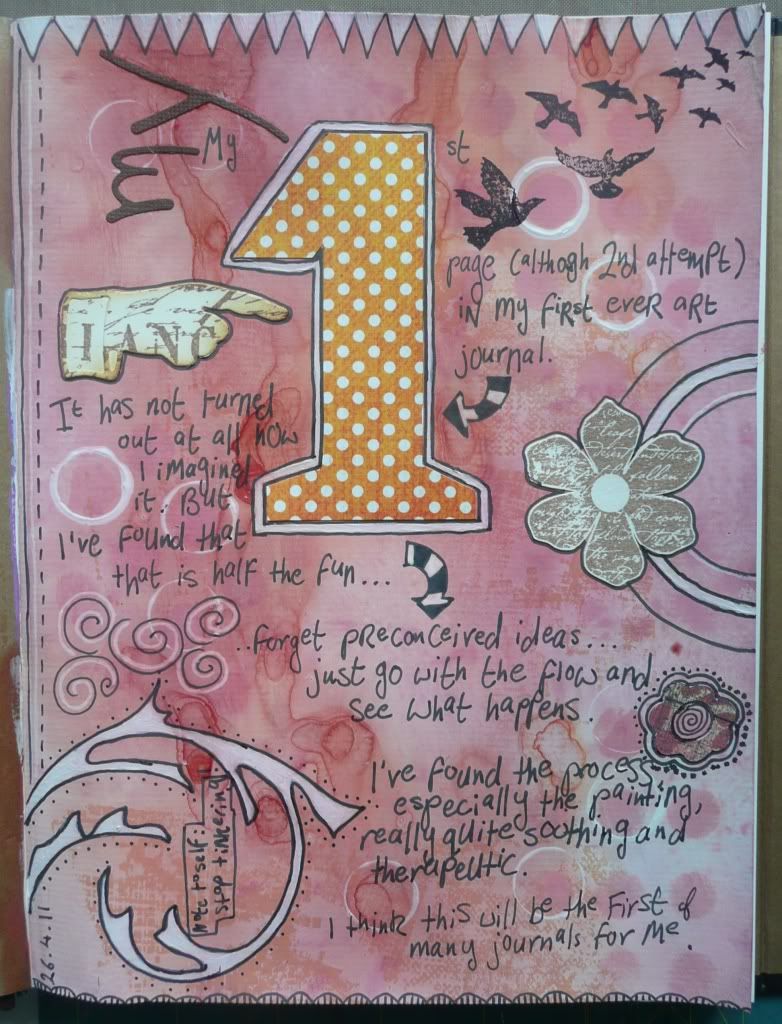 My
My
1
st
page (althogh 2nd attempt)
in my first ever art
journal.
IANC
It has not turned
out at all how
I imagined
it. But
I've found that
that is half the fun...
..forget preconceived ideas....
just go with the flow and
see what happens.
I've found the process,
especially the painting,
really quite soothing and
therapeutic.
I think this will be the first of
many journals for me.
Note to self:
stop tinkering!!
26.4.11